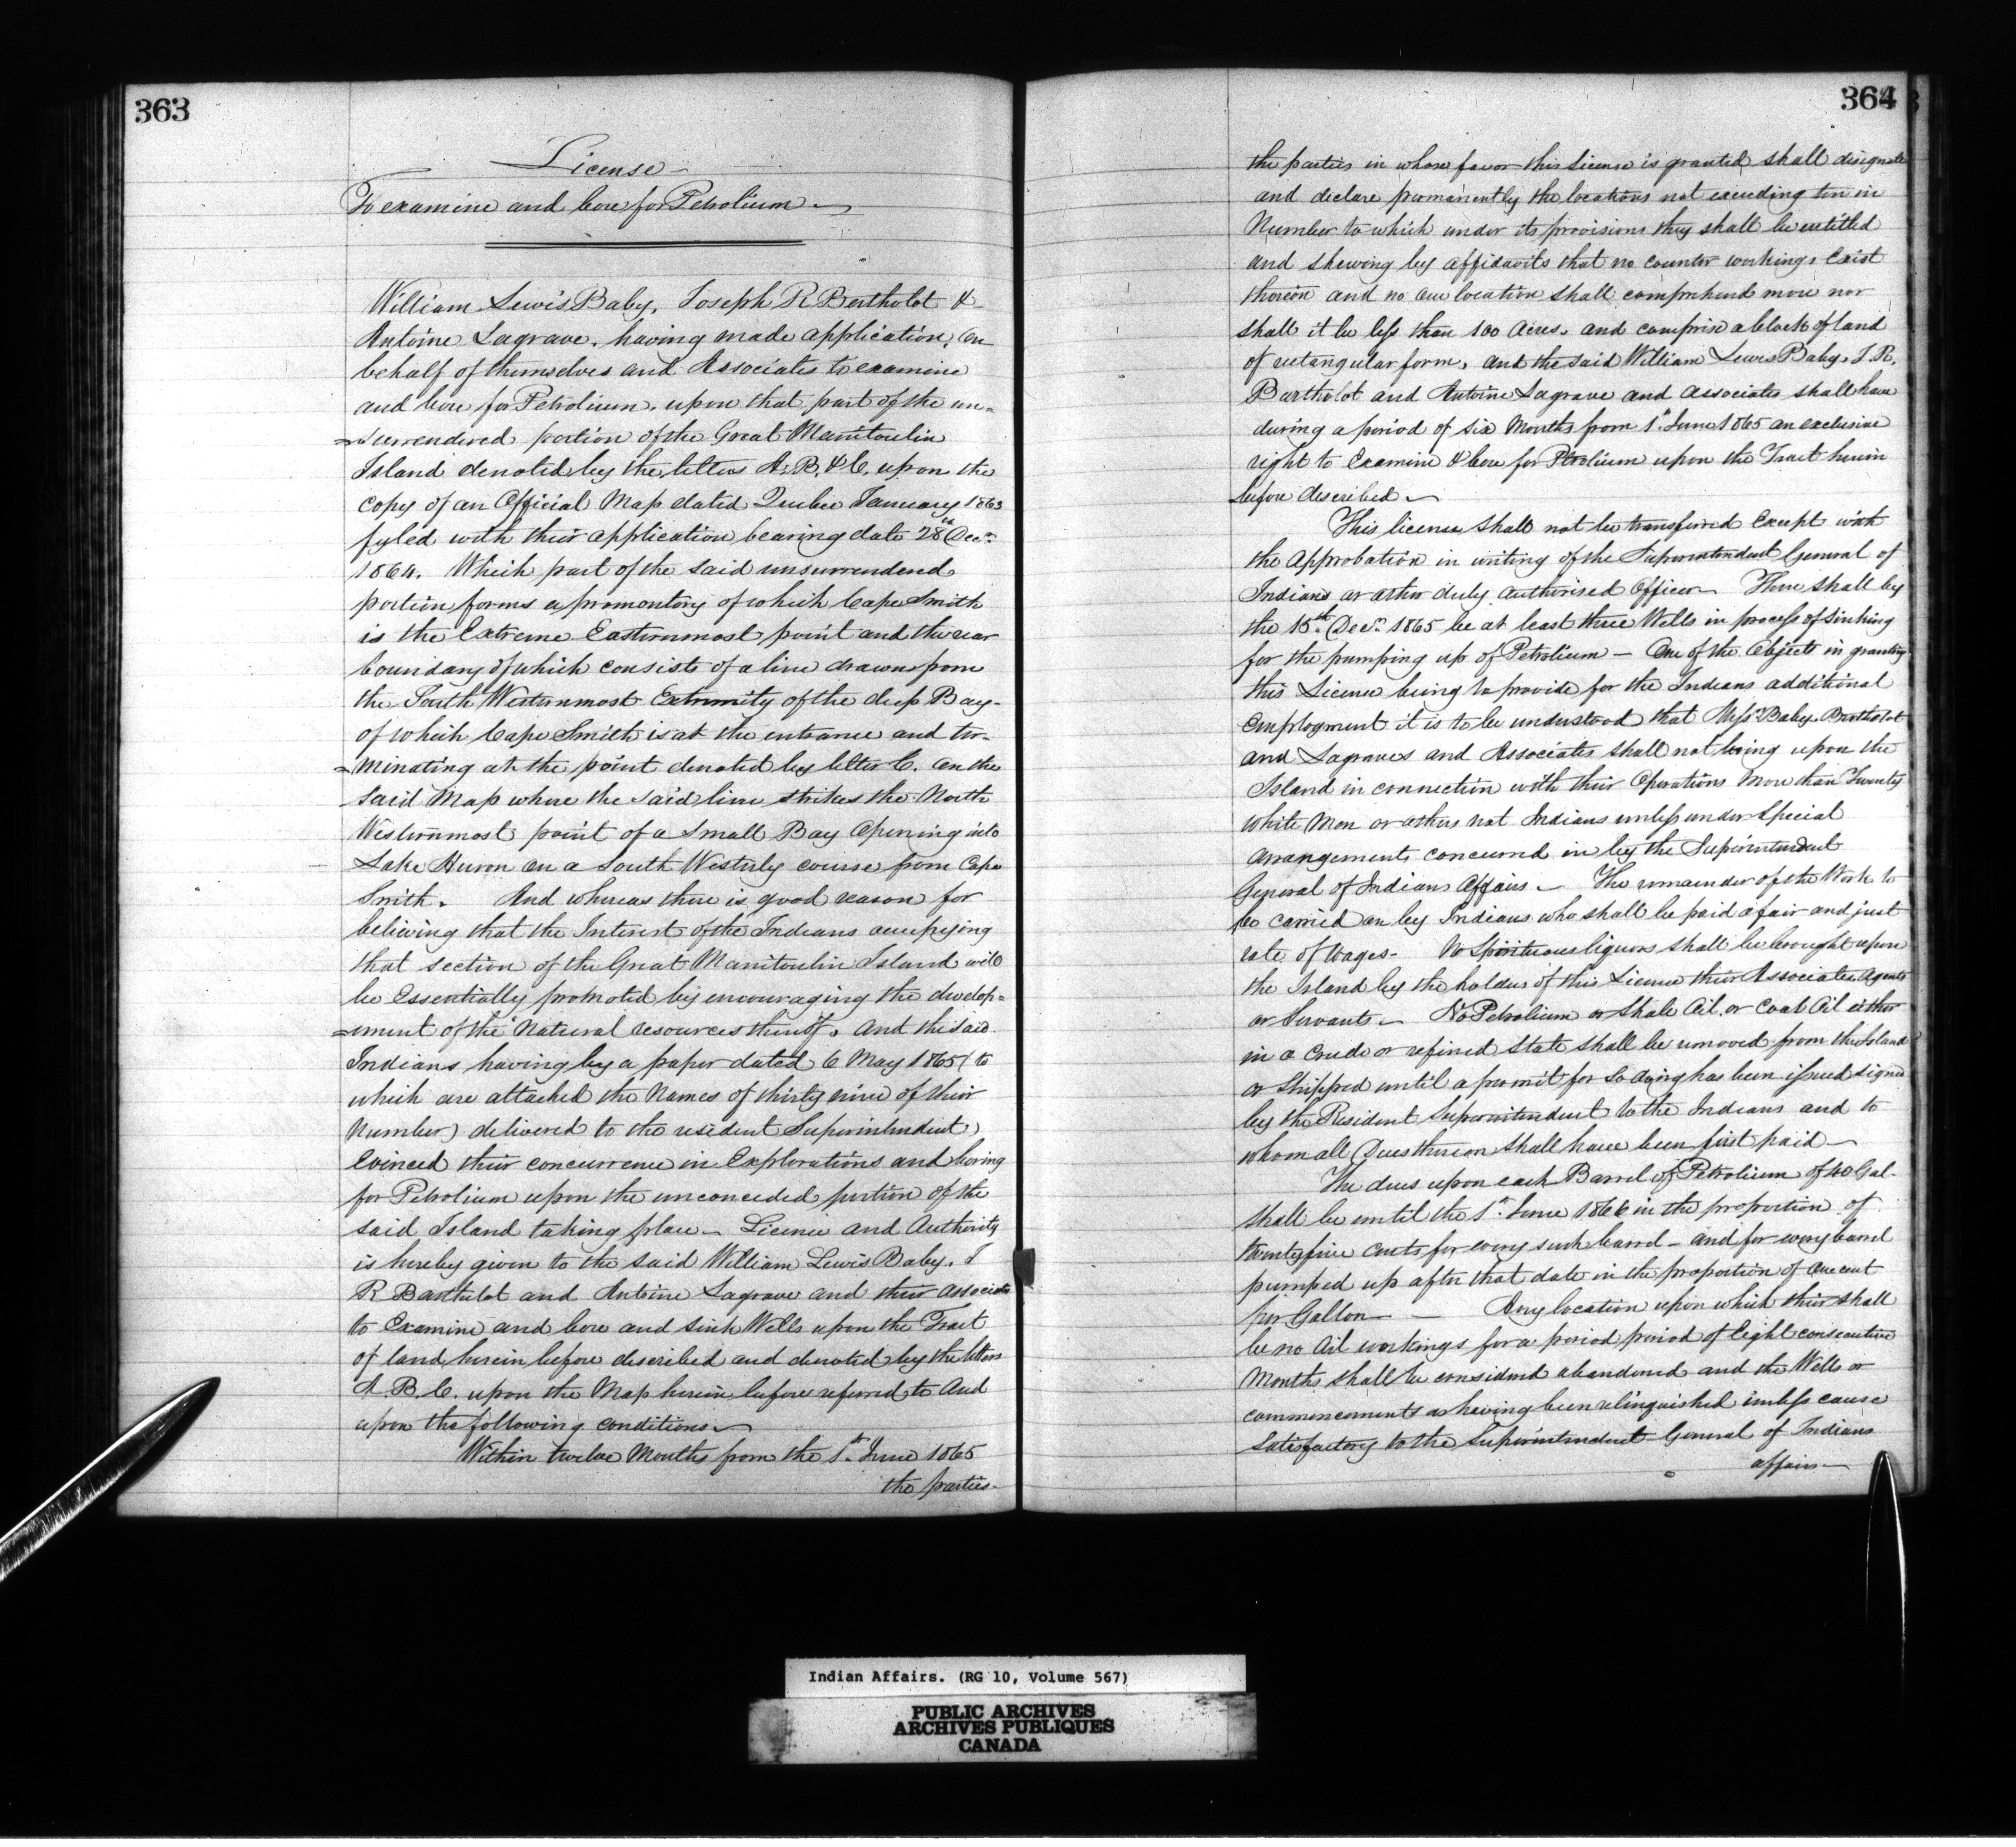 363
License
To examine and bore for Petrolium
William Lewis Baby, Joseph R Bertholot &
Antoine Lagrave, having made application, on
behalf of themselves and Associates to examine
and bore for Petrolium, upon that part of the un=
=surrendered portion of the Great Manitoulin
Island denoted by the letters A, B, & C, upon the
copy of an Official Map dated Quebec January 1863
fyled with their application bearing date 28th Decr
1864. Which part of the said unsurrendered
portion forms a promontory of which Cape Smith
is the Extreme Easternmost point and the rear
boundary of which consists of a line drawn from
the South Westernmost Extremity of the deep Bay
of which Cape Smith is at the entrance and ter=
=minating at the point denoted by letter C. on the
said Map where the said line strikes the North
Westernmost point of a Small Bay Opening into
Lake Huron on a South Westerly course from Cape
Smith. And whereas there is good reason for
believing that the Interest of the Indians occupying
that section of the Great Manitoulin Island will
be Essentially promoted by encouraging the develop=
=ement of the Natural resources thereof, And the said
Indians having by a paper dated 6 May 1865 (to
which are attached the Names of thirty nine of their
Number) delivered to the resident Superintendent,
Evinced their concurrence in Explorations and boring
for Petrolium upon the unconceded portion of the
said Island taking place - Licence and Authority
is hereby given to the said William Lewis Baby, J
R Barthelot and Antoine Lagrave and their associates
to Examine and bore and sink Wells upon the Tract
of land, herein before described and denoted by the letters
A. B. C. upon the Map herein before referred to And
upon the following conditions
Within twelve Months from the 1st June 1865
the parties
364
the parties in whose favor this License is granted shall designate
and declare permanently the locations not exceeding ten in
Number to which under its provisions they shall be entitled
and shewing by affidavits that no counter workings Exist
thereon and no one location shall comprehend more nor
shall it be less than 100 Acres. and comprise a block of land
of rectangular form, and the said William Lewis Baby, J. R.
Bartholot and Antoine Lagrave and associates shall have
during a period of six Months from 1st June 1865 an exclusive
right to Examine & bore for Petrolium upon the Tract herein
before described
This license shall not be transferred Except with
the Approbation in writing of the Superintendent General of
Indians or other duly authorised Officer There shall by
the 15th Decr 1865 be at least three Wells in process of sinking
for the pumping up of Petrolium - One of the Objects in granting
this License being to provide for the Indians additional
Employment it is to be understood that Messrs Baby Bartholot
and Lagraves and Associates shall not bring upon the
Island in connection with their Operations More than Twenty
White Men or others not Indians unless under Special
Arrangements concurred in by the Superintendent
General of Indians Affairs - The remainder of the Work to
be carried on by Indians who shall be paid a fair and just
rate of wages - No Spirituous liquors shall be brought upon
the Island by the holders of this Licence their Associates Agents
or Servants - No Petrolium or Shale Oil, or Coal Oil either
in a Crude or refined State shall be removed from the Island
or Shipped until a permit for so doing has been issued signed
by the Resident Superintendent to the Indians and to
whom all Dues thereon shall have been first paid
The dues upon each Barrel of Petrolium of 40 Gal.
shall be until the 1st June 1866 in the proportion of
twenty five cents for every such barrel - and for every barrel
pumped up after that date in the proportion of One cent
per Gallon - Any location upon which their shall
be no Oil workings for a period period of Eight consecutive
Months shall be considered abandoned and the Wells or
commencements as having been relinquished unless cause
satisfactory to the Superintendent General of Indians
affairs
Indian Affairs. (RG 10, Volume 567)
PUBLIC ARCHIVES
ARCHIVES PUBLIQUES
CANADA